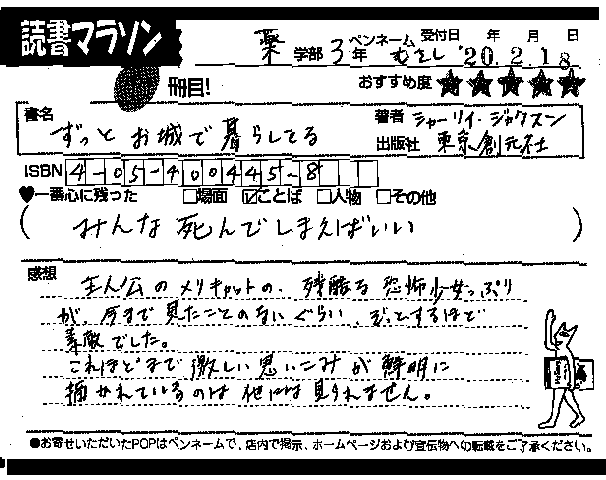 読書マラソン
冊目!
薬 学部 3年 ペンネーム むさし 受付日 年 月 日 '20.2.18
おすすめ度 ★★★★★
書名 ずっとお城で暮らしてる
著者 シャーリイ・ジャクスン
出版社 東京創元社
ISBN 4-05-400445-8
♥一番心に残った □場面 ☑ことば □人物 □その他
(みんな死んでしまえばいい)
感想 主人公のメリキャットの、残酷な恐怖少女っぷり
が、今まで見たことのないぐらい、ぞっとするほど
素敵でした。
これほどまで激しい思いこみが鮮明に
描かれているのは他には見られません。
●お寄せいただいたPOPはペンネームで、店内で掲示、ホームページおよび宣伝物への転載をご了承ください。